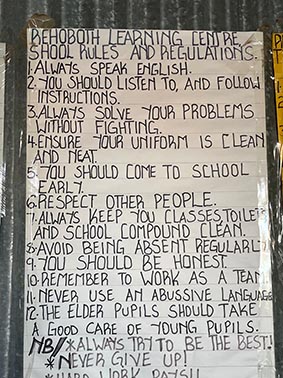 REHOBOTH LEARNING CENTRE
SHOOL RULES AND REGULATIONS.
1. ALWAYS SPEAK ENGLISH.
2. YOU SHOULD LISTEN TO, AND FOLLOW
INSTRUCTIONS.
3. ALWAYS SOLVE YOUR PROBLEMS
WITHOUT FIGHTING.
4. ENSURE YOUR UNIFORM IS CLEAN
AND NEAT.
5. YOU SHOULD COME TO SCHOOL
EARLY.
6. RESPECT OTHER PEOPLE.
7. ALWAYS KEEP YOU CLASSES, TOILET
AND SCHOOL COMPOUND CLEAN.
8. AVOID BEING ABSENT REGULARLY
9. YOU SHOULD BE HONEST.
10. REMEMBER TO WORK AS A TEAM
11. NEVER USE AN ABUSSIVE LANGUAGE
12. THE ELDER PUPILS SHOULD TAKE
A GOOD CARE OF YOUNG PUPILS.
NB// *ALWAYS TRY TO BE THE BEST!
*NEVER GIVE UP!
*HARD WORK PAYS!!